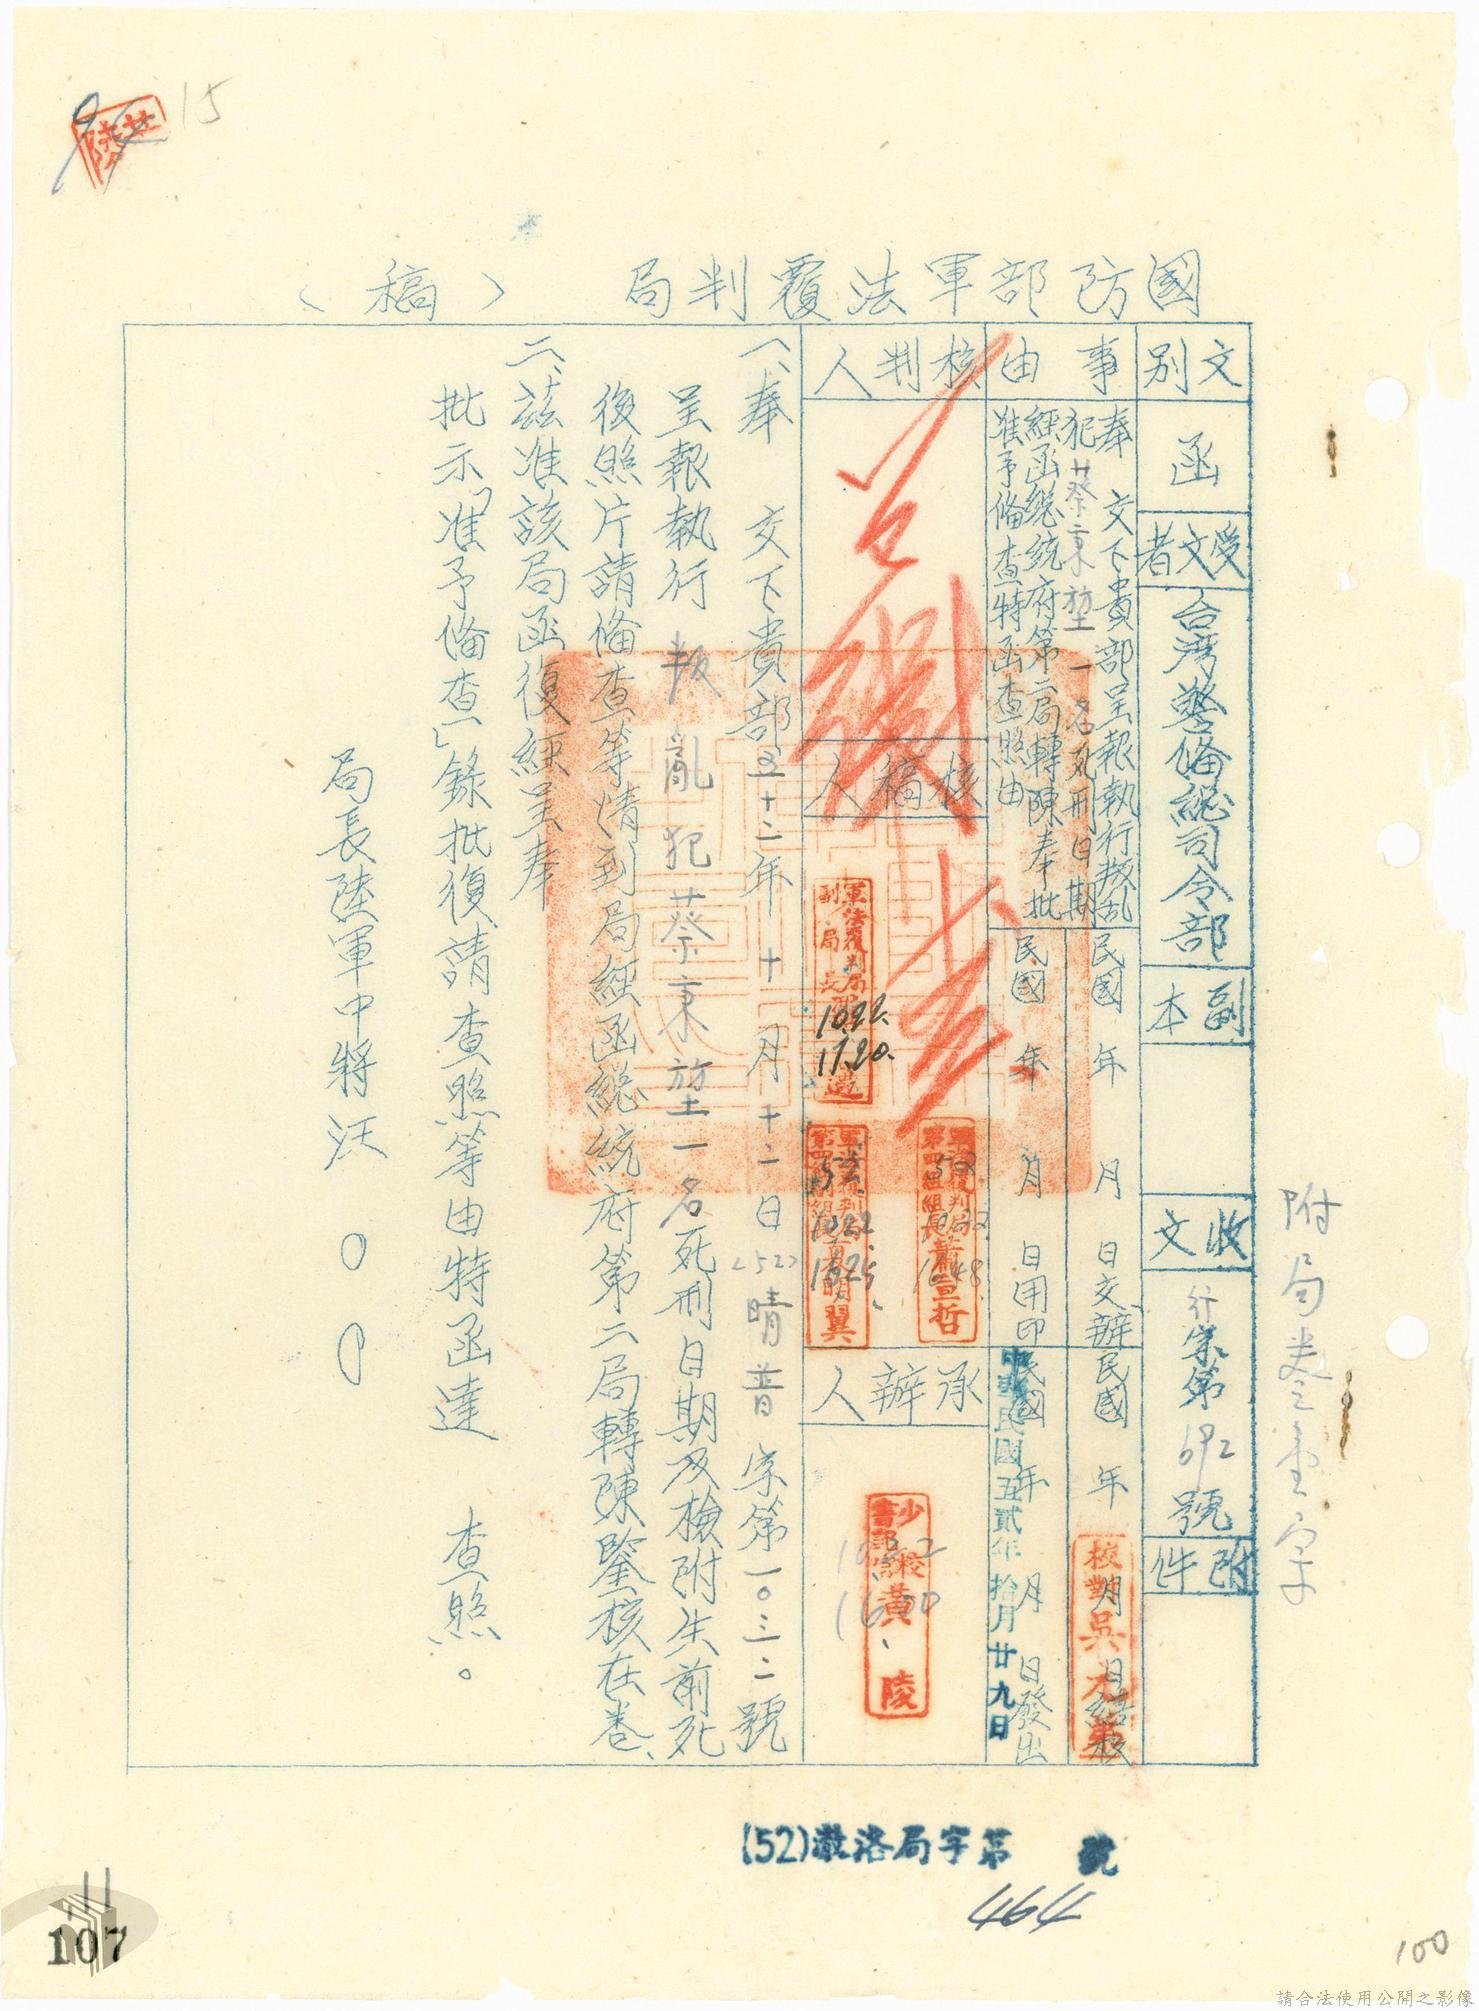 15
國防部軍法覆判局(稿)
文別
函
受文者
台湾警备總司令部
副本
收文
行宗第692號
附件
事由
奉 交下貴部呈報執行叛乱
犯蔡秉堃一名死刑日期
經函總統府第二局轉陳奉批
准予俻查特函查照由
民國 年 月 日交辦
民國 年 月 日繕校
民國 年 月 日用印
民國 年 月 日發出
校對吳
中華民國五貳年拾月廿九日
核判人
核稿人
軍法覆判局
副局長
1022
1720
軍法覆判局
第四組組長蕭宣哲
軍法覆判局
1022
1625
承辦人
少校
書記官黃陵
1022
1600
一、奉 交下貴部五十二年十月十二日(52)晴普字第一〇三二號
呈報執行叛亂犯蔡秉堃一名死刑日期及檢附生前死
後照片請俻查等情到局經函總統府第二局轉陳鑒核在卷、
二、茲准該局函復經呈奉
批示「准予俻查」錄批復請查照等由特函達 查照。
局長陸軍中將汪〇〇
(52)局字第 號
464
107
100
請合法使用公開之影像